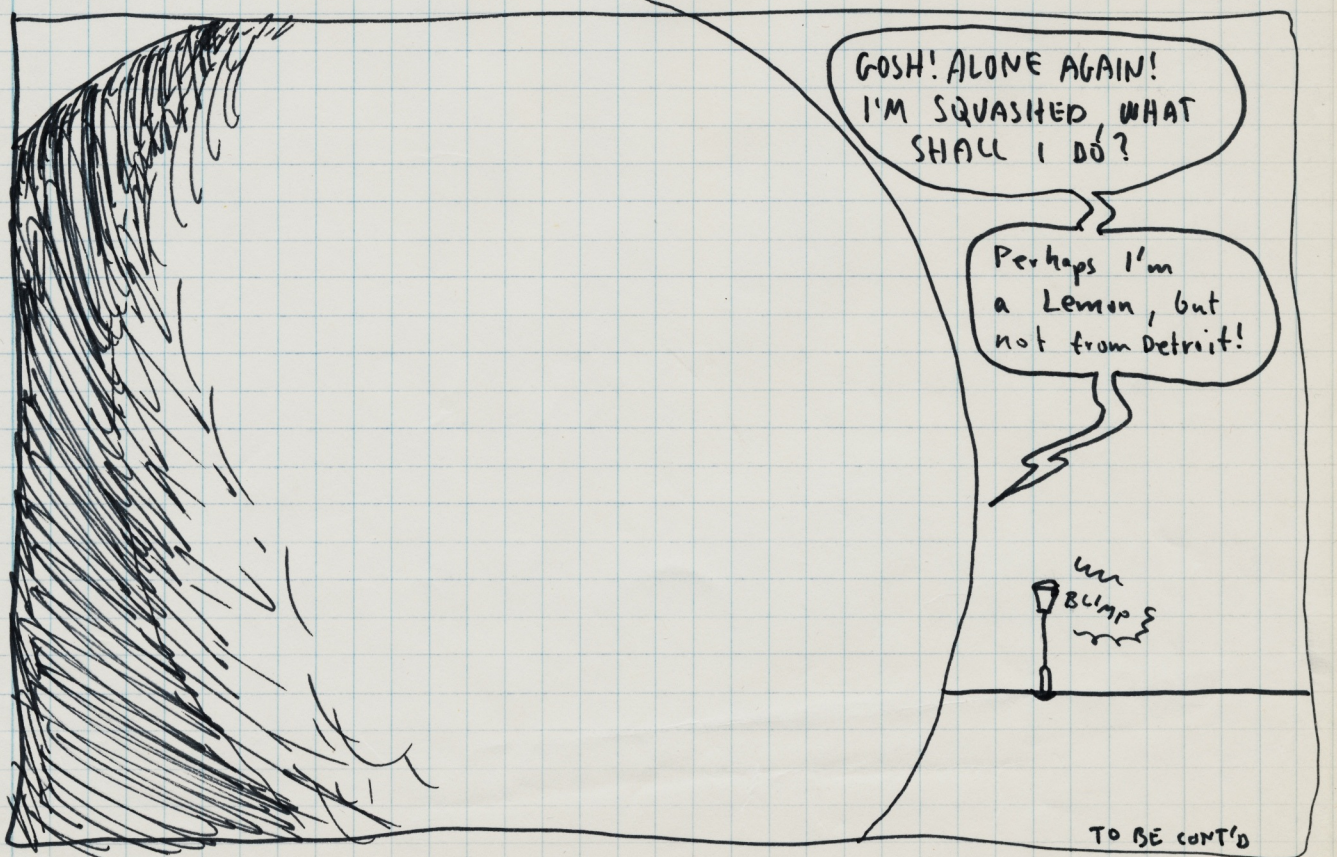 GOSH! ALONE AGAIN!
I'M SQUASHED, WHAT
SHALL I DO?
Perhaps I'm
a Lemon, but
not from Detroit!
BLIMP
TO BE CONT'D